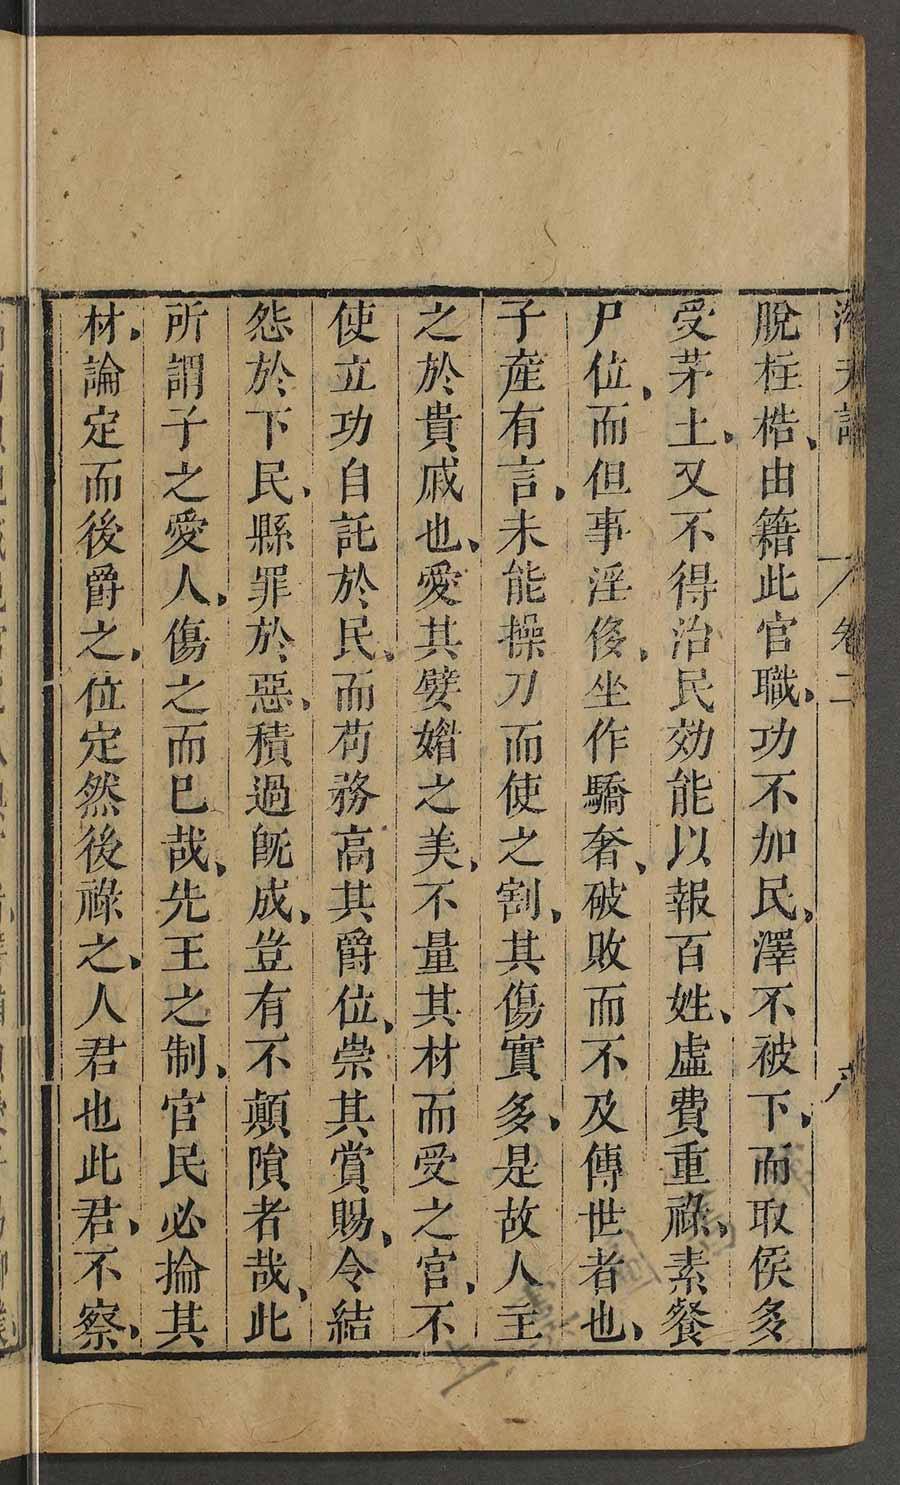 潛夫論 卷二
脫桎梏、由籍此官職、功不加民、澤不被下、而取侯多
受茅土、又不得治民効能以報百姓、虛費重祿、素餐
尸位、而但事淫侈、坐作驕奢、破敗而不及傳世者也、
子產有言、未能操刀而使之割、其傷實多、是故人主
之於貴戚也、愛其嬖媚之美、不量其材而受之官、不
使立功自託於民、而苟務高其爵位、崇其賞賜、令結
怨於下民、縣罪於惡、積過既成、豈有不顛隕者哉、此
所謂子之愛人、傷之而已哉、先王之制、官民必掄其
材、論定而後爵之、位定然後祿之、人君也此君、不察、